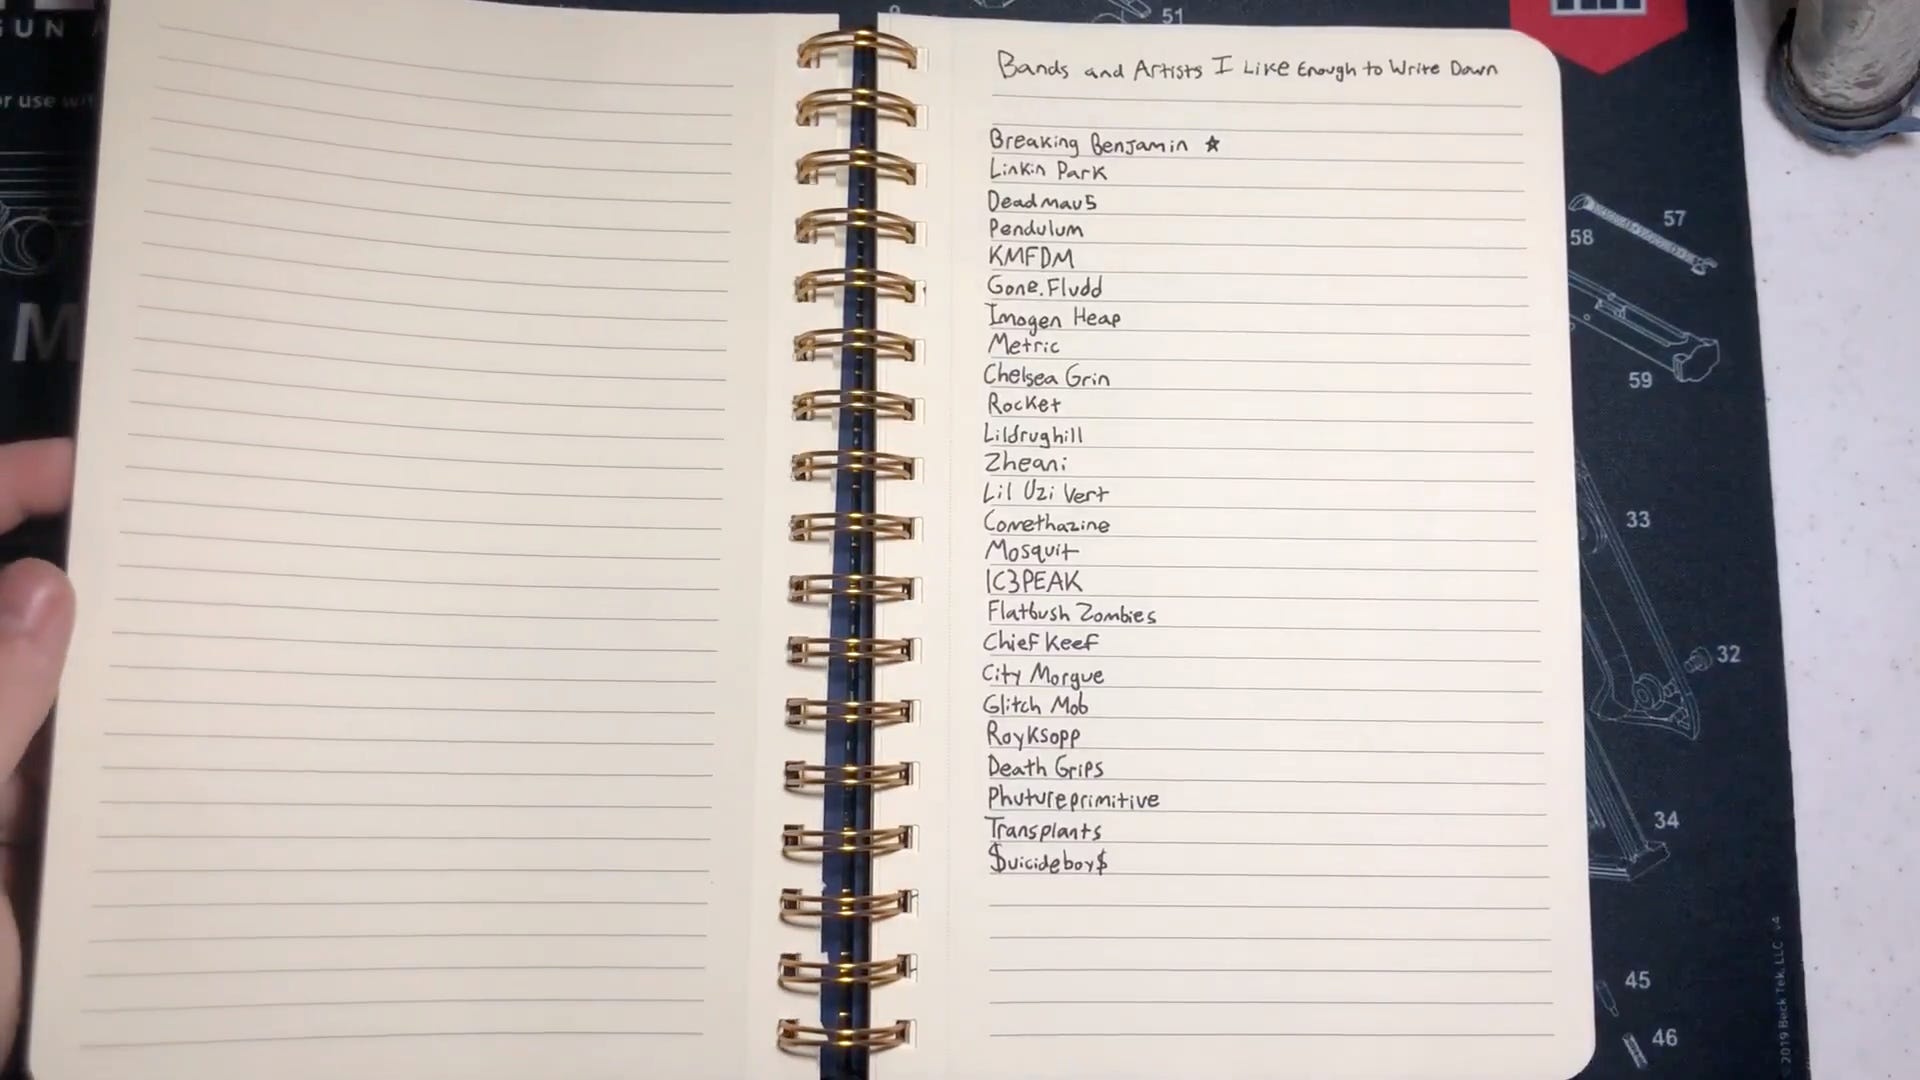 51
GUN
or use wit
M
Bands and Artists I Like Enough to Write Down
Breaking Benjamin ☆
Linkin Park
Deadmau5
Pendulum
KMFDM
Gone.Fludd
Imogen Heap
Metric
Chelsea Grin
Rocket
Lildrughill
Zheani
Lil Uzi Vert
Comethazine
Mosquit
IC3PEAK
Flatbush Zombies
Chief Keef
City Morgue
Glitch Mob
Royksopp
Death Grips
Phutureprimitive
Transplants
$uicideboy$
57
58
59
33
32
34
45
46
© 2019 Beck Tek, LLC v4